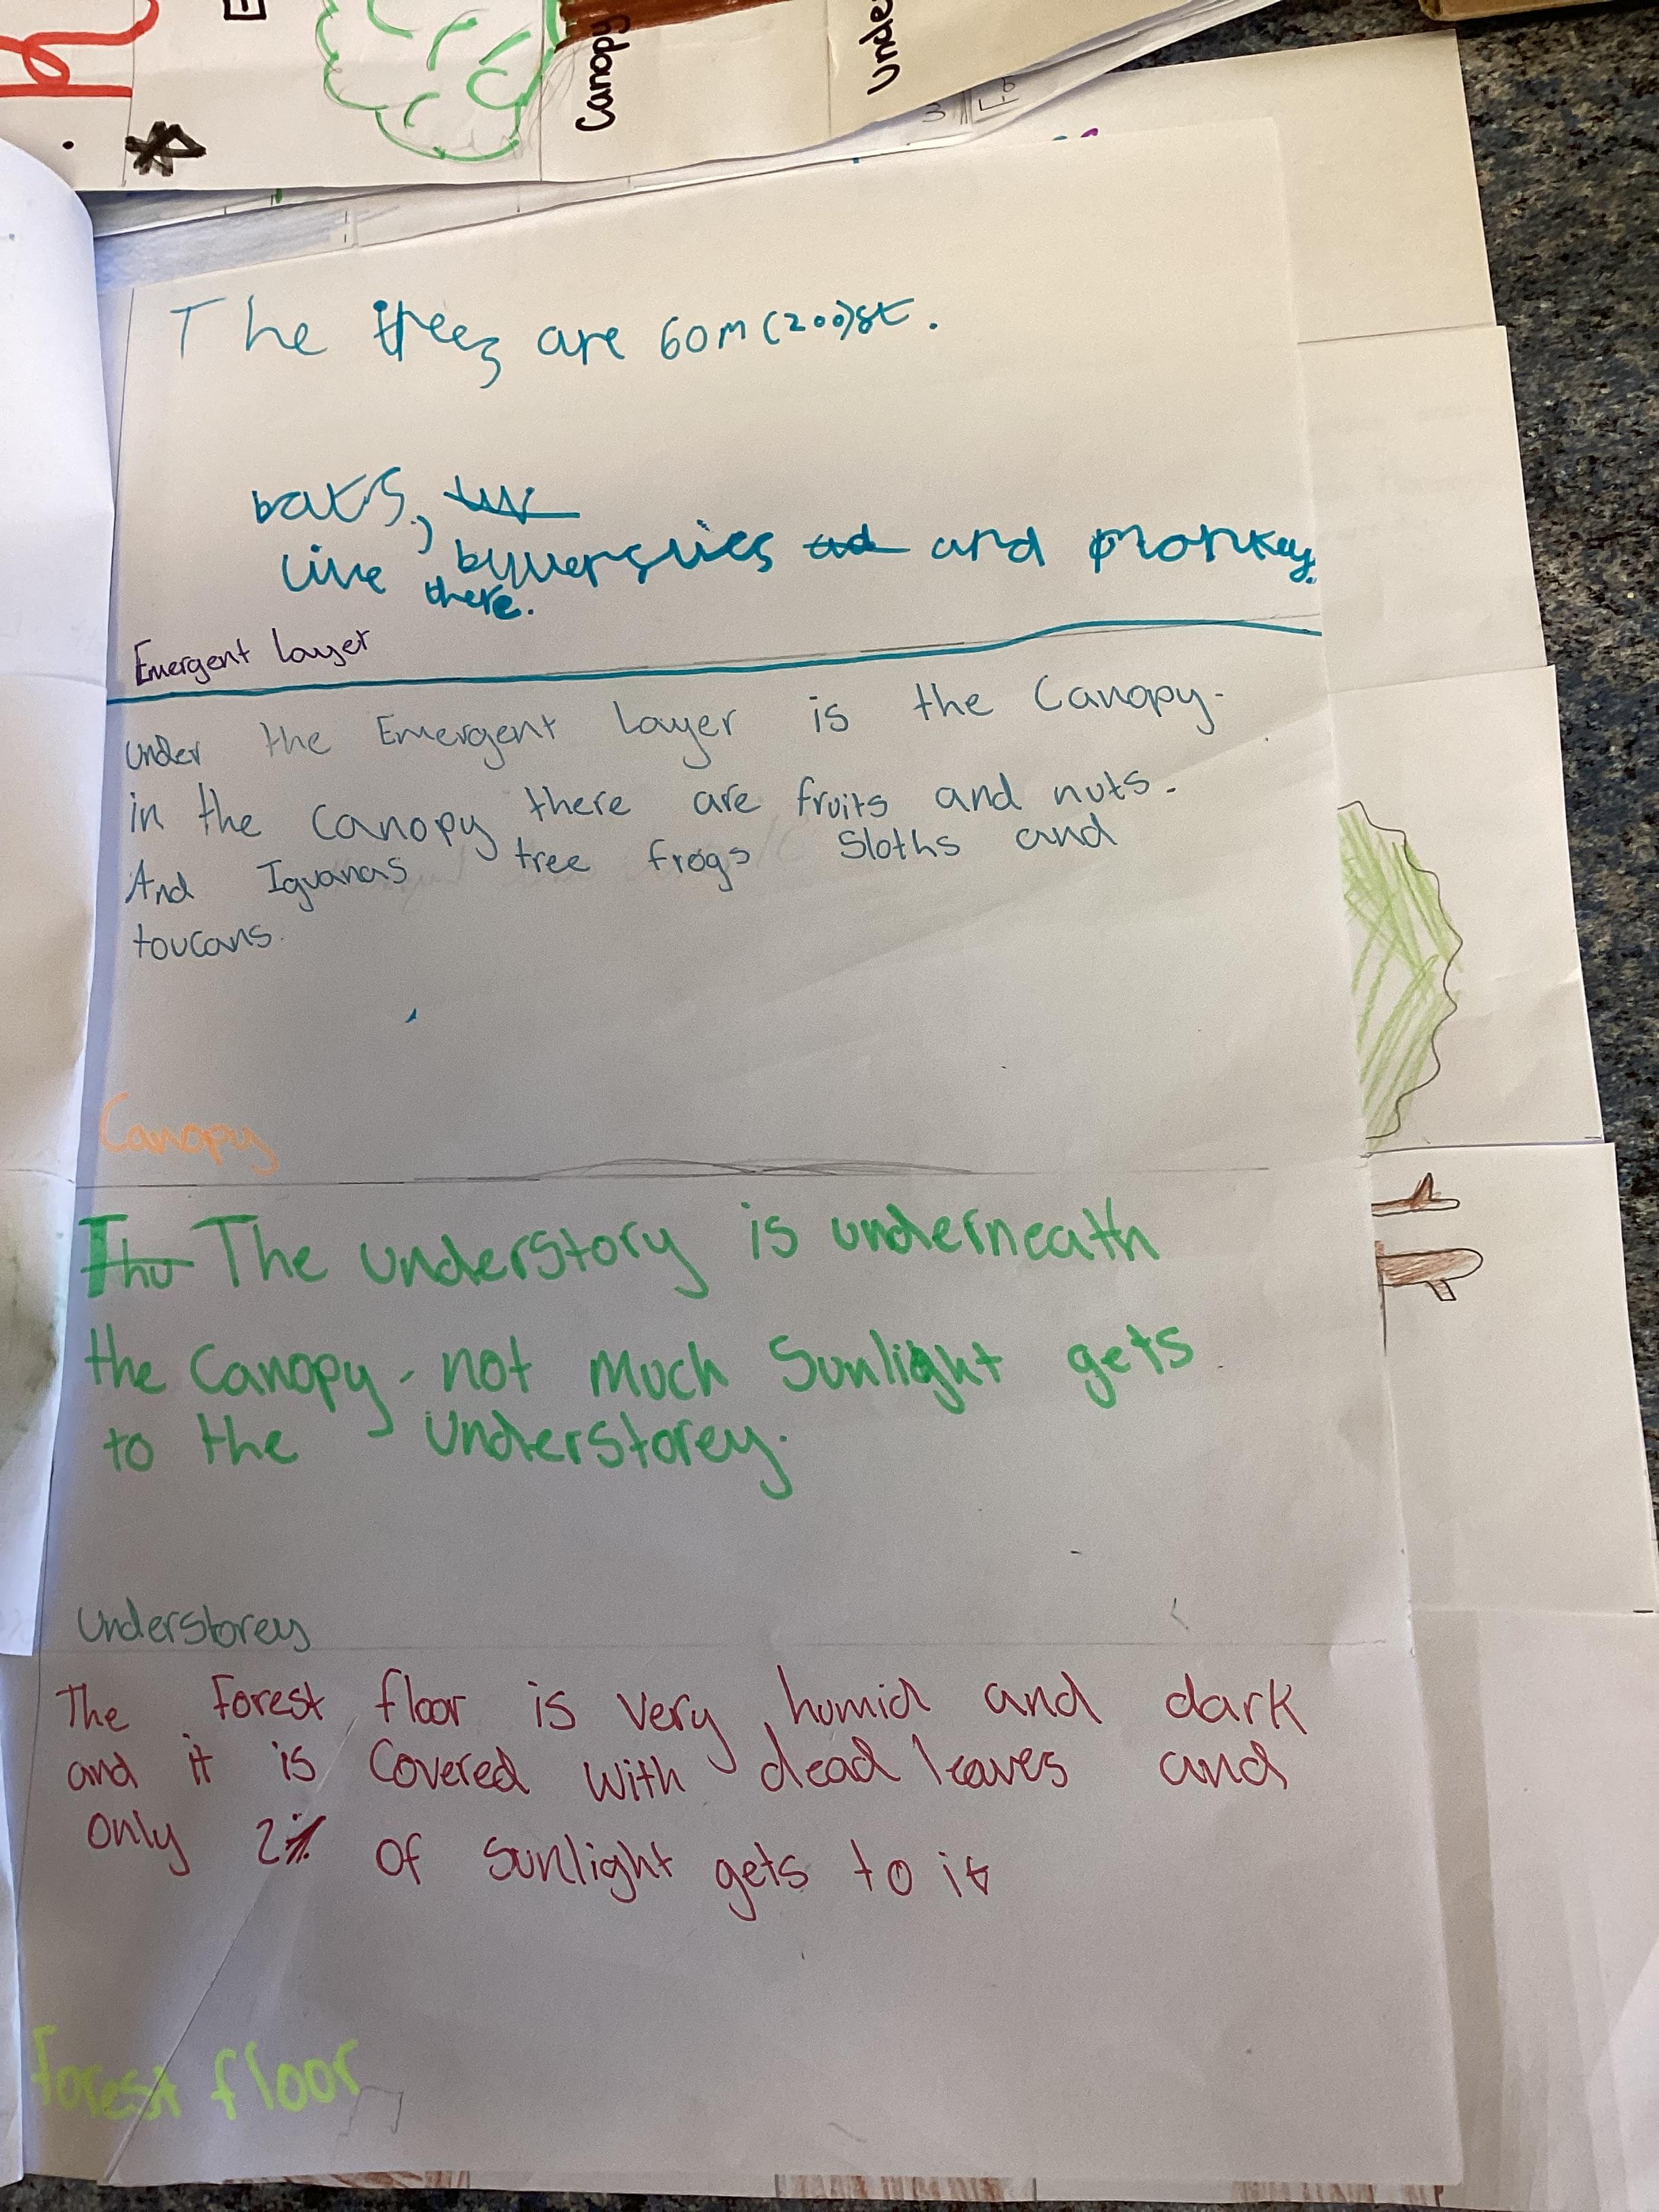 Canopy
Unde
The trees are 60m (200)st.
bats,
live , byuerglies and monkey.
there.
Emergent Layer
Under the Emergent Layer is the Canopy.
in the Canopy there are fruits and nuts.
And Iguanas tree frogs Sloths and
toucans.
Canopy
The understory is underneath
the Canopy. not much Sunlight gets
to the Understorey.
Understorey
The Forest floor is very humid and dark
and it is Covered with dead leaves and
only 2% of Sunlight gets to it
Forest floor